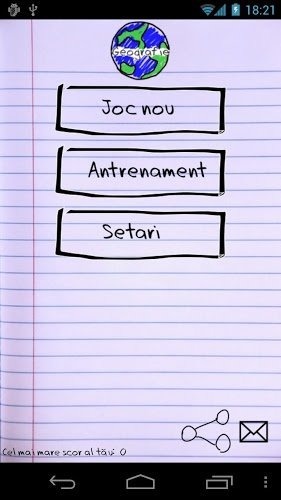 18:21
Geografie
Joc nou
Antrenament
Setari
Cel mai mare scor al tău: 0